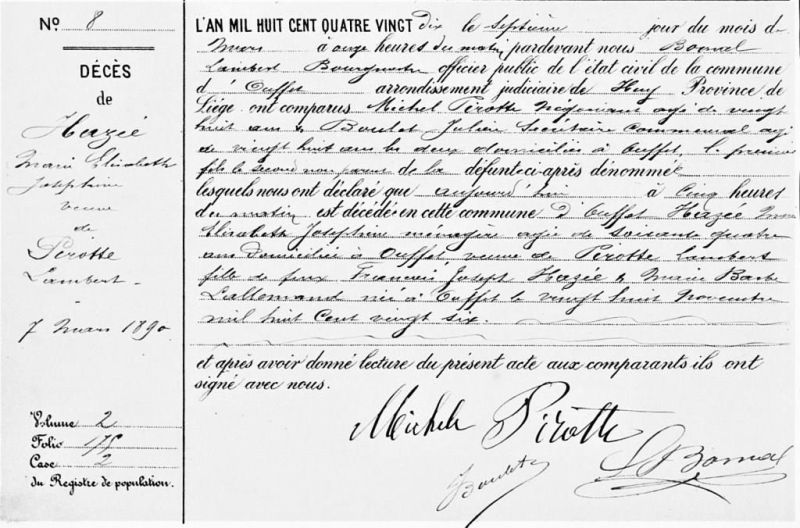 No 8
DÉCÈS
de
Hazée
Marie Elisabeth
Joséphine
veuve
de
Pirotte
Lambert
7 Mars 1890
Volume 2
Folio 175
Case 2
du Registre de population.
L'AN MIL HUIT CENT QUATRE VINGT dix le septième jour du mois de
Mars à onze heures du matin pardevant nous Bonmal
Lambert Bourgmestre officier public de l'état civil de la commune
d'Ouffet arrondissement judiciaire de Huy Province de
Liège ont comparus Michel Pirotte Négociant agé de vingt
huit ans & Boulet Julien Secrétaire Communal agé
de vingt huit ans les deux domiciliés à Ouffet le premier
fils le second non parent de la défunte ci-après dénommée
lesquels nous ont déclaré que aujourd'hui à cinq heures
du matin est décédée en cette commune d'Ouffet Hazée Marie
Elisabeth Joséphine ménagère agée de soixante quatre
ans domiciliée à Ouffet veuve de Pirotte Lambert
fille de feux François Joseph Hazée & Marie Barbe
Lallemand née à Ouffet le vingt huit Novembre
mil huit cent vingt six.
et après avoir donné lecture du présent acte aux comparants ils ont
signé avec nous.
Michel Pirotte
Boulet
Bonmal